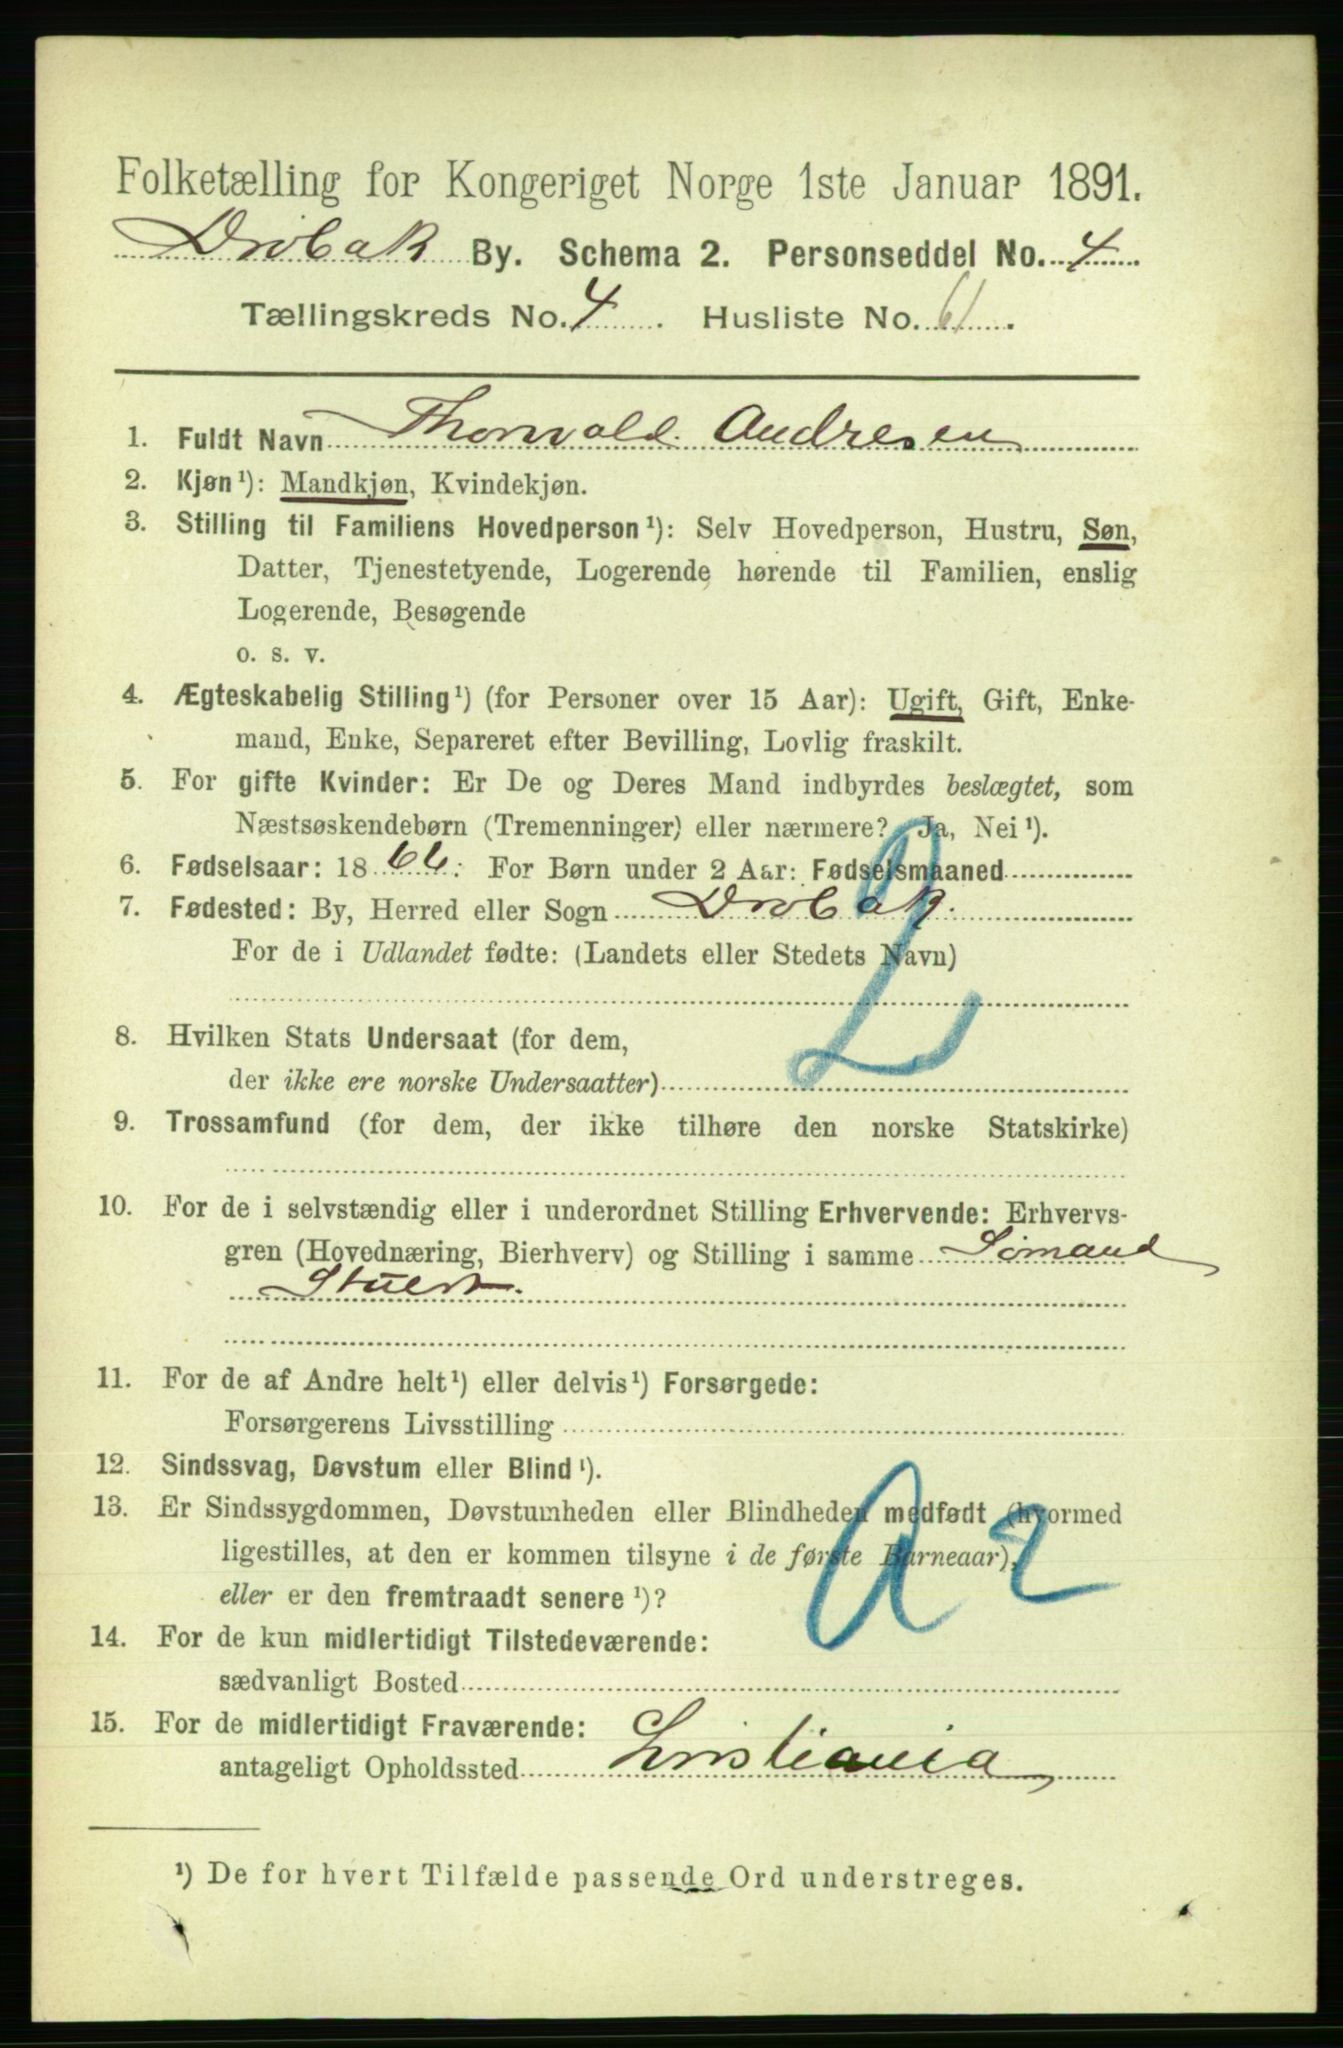 Folketælling for Kongeriget Norge 1ste Januar 1891.
Drøbak By. Schema 2. Personseddel No. 4
Tællingskreds No. 4. Husliste No. 61.
1. Fuldt Navn Thorvald Andresen
2. Kjøn¹): Mandkjøn, Kvindekjøn.
3. Stilling til Familiens Hovedperson¹): Selv Hovedperson, Hustru, Søn,
Datter, Tjenestetyende, Logerende hørende til Familien, enslig
Logerende, Besøgende
o. s. v.
4. Ægteskabelig Stilling¹) (for Personer over 15 Aar): Ugift, Gift, Enke-
mand, Enke, Separeret efter Bevilling, Lovlig fraskilt.
5. For gifte Kvinder: Er De og Deres Mand indbyrdes beslægtet, som
Næstsøskendebørn (Tremenninger) eller nærmere? Ja, Nei¹).
6. Fødselsaar: 1866: For Børn under 2 Aar: Fødselsmaaned
7. Fødested: By, Herred eller Sogn Drøbak.
For de i Udlandet fødte: (Landets eller Stedets Navn)
8. Hvilken Stats Undersaat (for dem,
der ikke ere norske Undersaatter)
9. Trossamfund (for dem, der ikke tilhøre den norske Statskirke)
10. For de i selvstændig eller i underordnet Stilling Erhvervende: Erhvervs-
gren (Hovednæring, Bierhverv) og Stilling i samme Sømand
Stuert.
11. For de af Andre helt¹) eller delvis¹) Forsørgede:
Forsørgerens Livsstilling
12. Sindssvag, Døvstum eller Blind¹).
13. Er Sindssygdommen, Døvstumheden eller Blindheden medfødt (hvormed
ligestilles, at den er kommen tilsyne i de første Barneaar),
eller er den fremtraadt senere¹)?
a 2
14. For de kun midlertidigt Tilstedeværende:
sædvanligt Bosted
15. For de midlertidigt Fraværende:
antageligt Opholdssted Kristiania
¹) De for hvert Tilfælde passende Ord understreges.